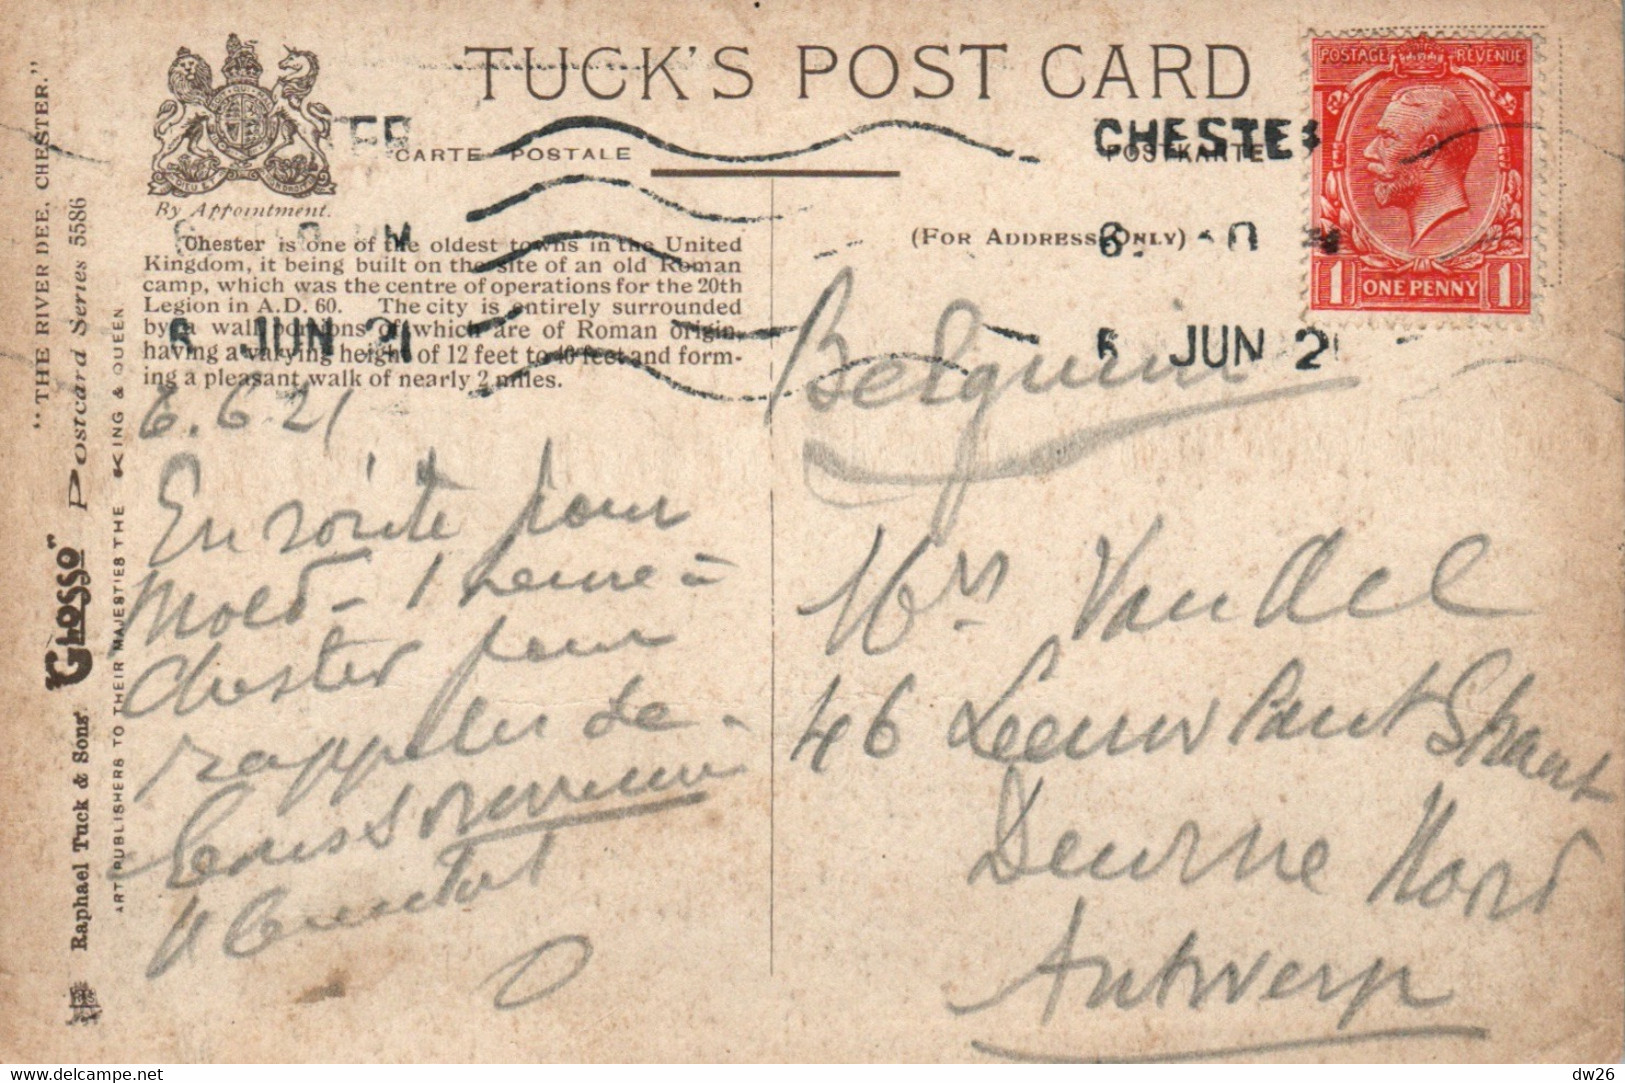 TUCK'S POST CARD
CARTE POSTALE
POSTKARTE
By Appointment.
(FOR ADDRESS ONLY)
POSTAGE REVENUE
1 ONE PENNY 1
CHESTER
6 JUN 21
CHESTE
6 JUN 2
Chester is one of the oldest towns in the United
Kingdom, it being built on the site of an old Roman
camp, which was the centre of operations for the 20th
Legion in A.D. 60. The city is entirely surrounded
by a wall portions of which are of Roman origin,
having a varying height of 12 feet to 40 feet and form-
ing a pleasant walk of nearly 2 miles.
6.6.21
En route pour
Mold - 1 heure à
Chester pour
rappeler de
bons souvenirs
Belguim
Mrs Van Ael
46 Leeuw Lant Straat
Deurne Nord
Antwerp
"THE RIVER DEE, CHESTER."
Raphael Tuck & Sons' "Glosso" Postcard Series 5586
ART PUBLISHERS TO THEIR MAJESTIES THE KING & QUEEN
dw26